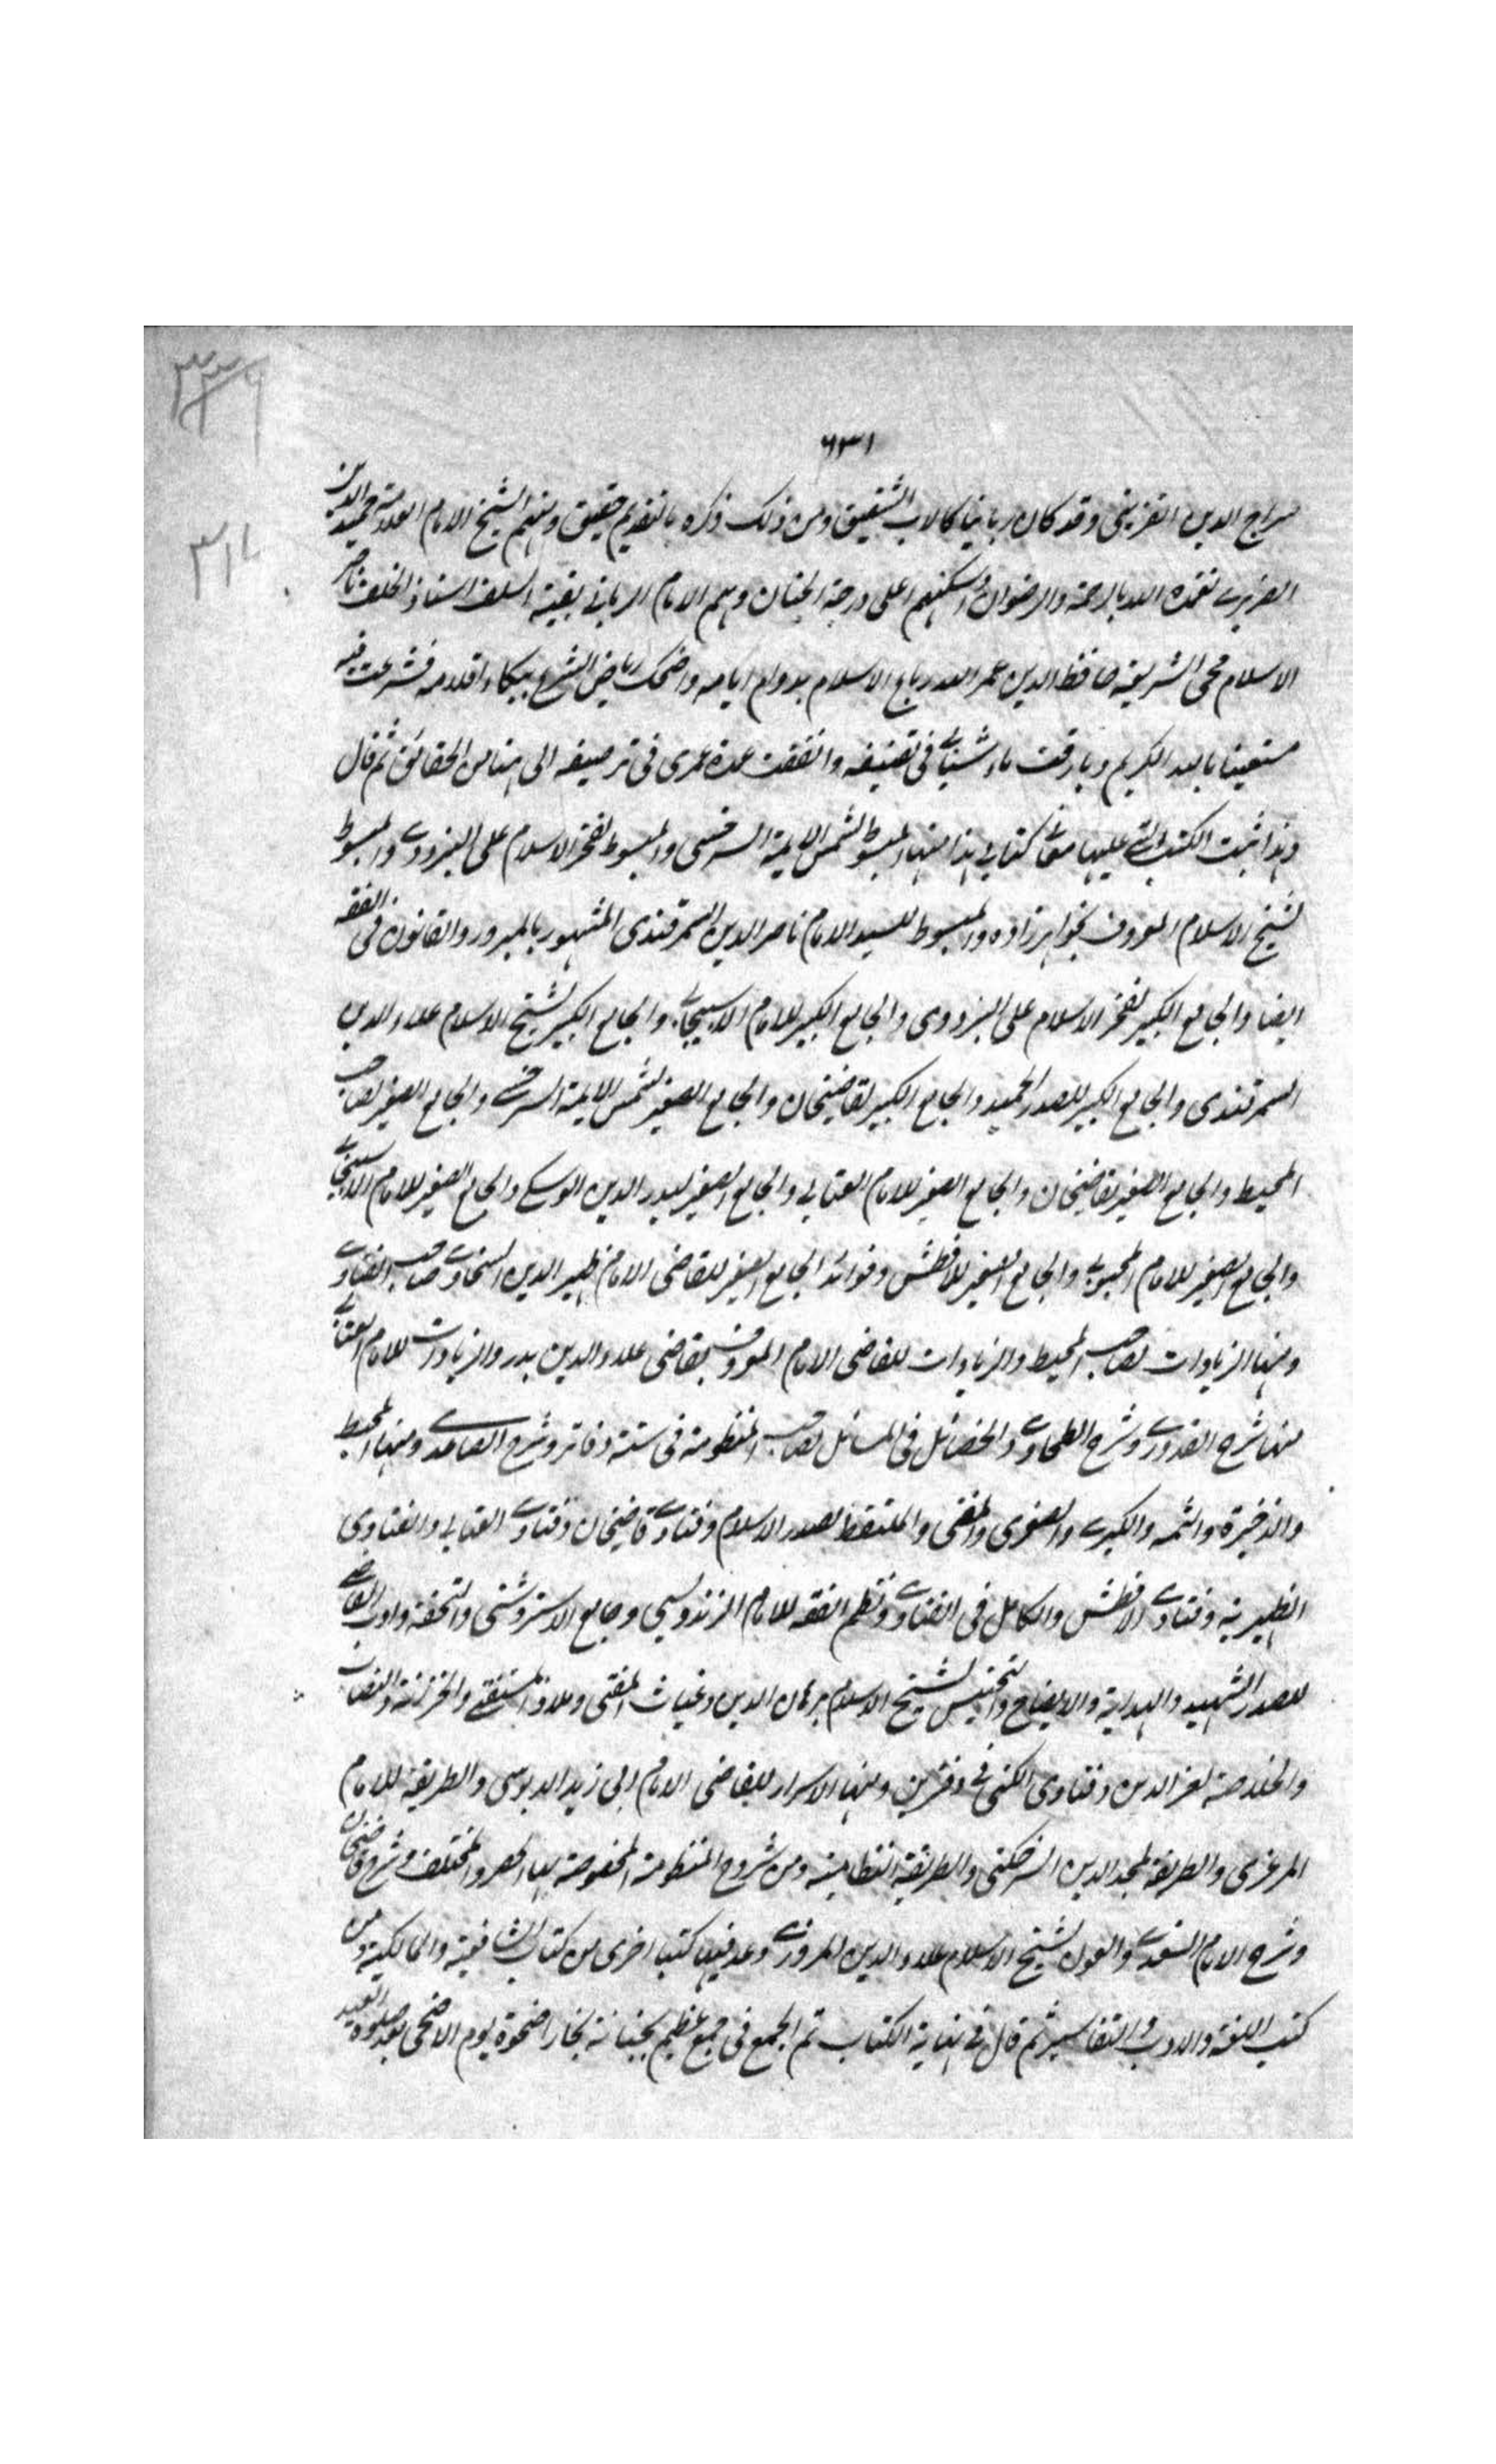 ٣٣٩
٦٣١
٣١٨
سراج الدين القزبنى وقد كان ربانيا كالاب الشفيق ومن ذلك ذكره بالتقديم حقيق ومنهم الشيخ الامام العلامة حميد الدين
الضرير تغمده الله بالرحمة والرضوان واسكنهم اعلى درجة الجنان ومنهم الامام الربانى بقية السلف استاذ الخلف ناصر
الاسلام محى الشريعة حافظ الدين عمر الله رباع الاسلام بدوام ايامه واضحك رياض الشرع ببكاء اقلامه فشرعت فيه
مستعينا بالله الكريم وبارقت ماء شبابى فى تصنيفه وانفقت عدة عمرى فى ترصيفه الى هنا من الحقائق ثم قال
وهذا ثبت الكتب التى عليها معانى كتابى هذا منها المبسوط لشمس الايمة السرخسى والمبسوط لفخر الاسلام على البزدوى والمبسوط
لشيخ الاسلام المعروف بخواهر زاده والمبسوط للسيد الامام ناصر الدين السمرقندى المشهور بالمبرور والقانون فى الفقه
ايضا والجامع الكبير لفخر الاسلام على البزدوى والجامع الكبير للامام الاسبيجابى والجامع الكبير لشيخ الاسلام علاء الدين
السمرقندى والجامع الكبير للصدر الحميد والجامع الكبير لقاضيخان والجامع الصغير لشمس الايمة السرخسى والجامع الصغير لصاحب
المحيط والجامع الصغير لقاضيخان والجامع الصغير للامام العتابى والجامع الصغير لبدر الدين الوسكى والجامع الصغير للامام الاسبيجابى
والجامع الصغير للامام المحبوبى والجامع الصغير للافطس وفوائد الجامع الصغير للقاضى الامام ظهير الدين البخارى صاحب الفتاوى
ومنها الزيادات لصاحب المحيط والزيادات للقاضى الامام المعروف بقاضى علاء الدين بدر والزيادات للامام العتابى
منها شرح القدورى وشرح الطحاوى والخصائل فى المسائل لصاحب المنظومة فى ستة دفاتر وشرح الصاعدى ومنها المحيط
والذخيرة والتتمه والكبرى والصغرى والمغنى والملتقط لصدر الاسلام وفتاوى قاضيخان وفتاوى العتابى والفتاوى
الظهيرية وفتاوى الافطس والكامل فى الفتاوى ونظم الفقه للامام الزندويسى وجامع الاستروشنى والتحفة وادب القاضى
للصدر الشهيد والهداية والايضاح والتجنيس لشيخ الاسلام برهان الدين وغياث المفتى وملاذ المستفتى والخزانة والنصاب
والخلاصة لعز الدين وفتاوى الكشى فى دفترين ومنها الاسرار للقاضى الامام ابى زيد الدبوسى والطريقة للامام
المرغزى والطريقة لمجد الدين السرخكتى والطريقة النظامية ومن شروح المنظومة المخصوصة بها الحصر والمختلف وشرح قاضيخان
وشرح الامام السغدى والعون لشيخ الاسلام علاء الدين المروزى وعد فيها كتبا اخرى من كتاب الشافعية والمالكية ومن
كتب اللغة والادب والتفاسير ثم قال فى نهاية الكتاب تم الجمع فى مجمع عظيم بجبانة بخارا ضحوة يوم الاضحى بعد صلوة العيد